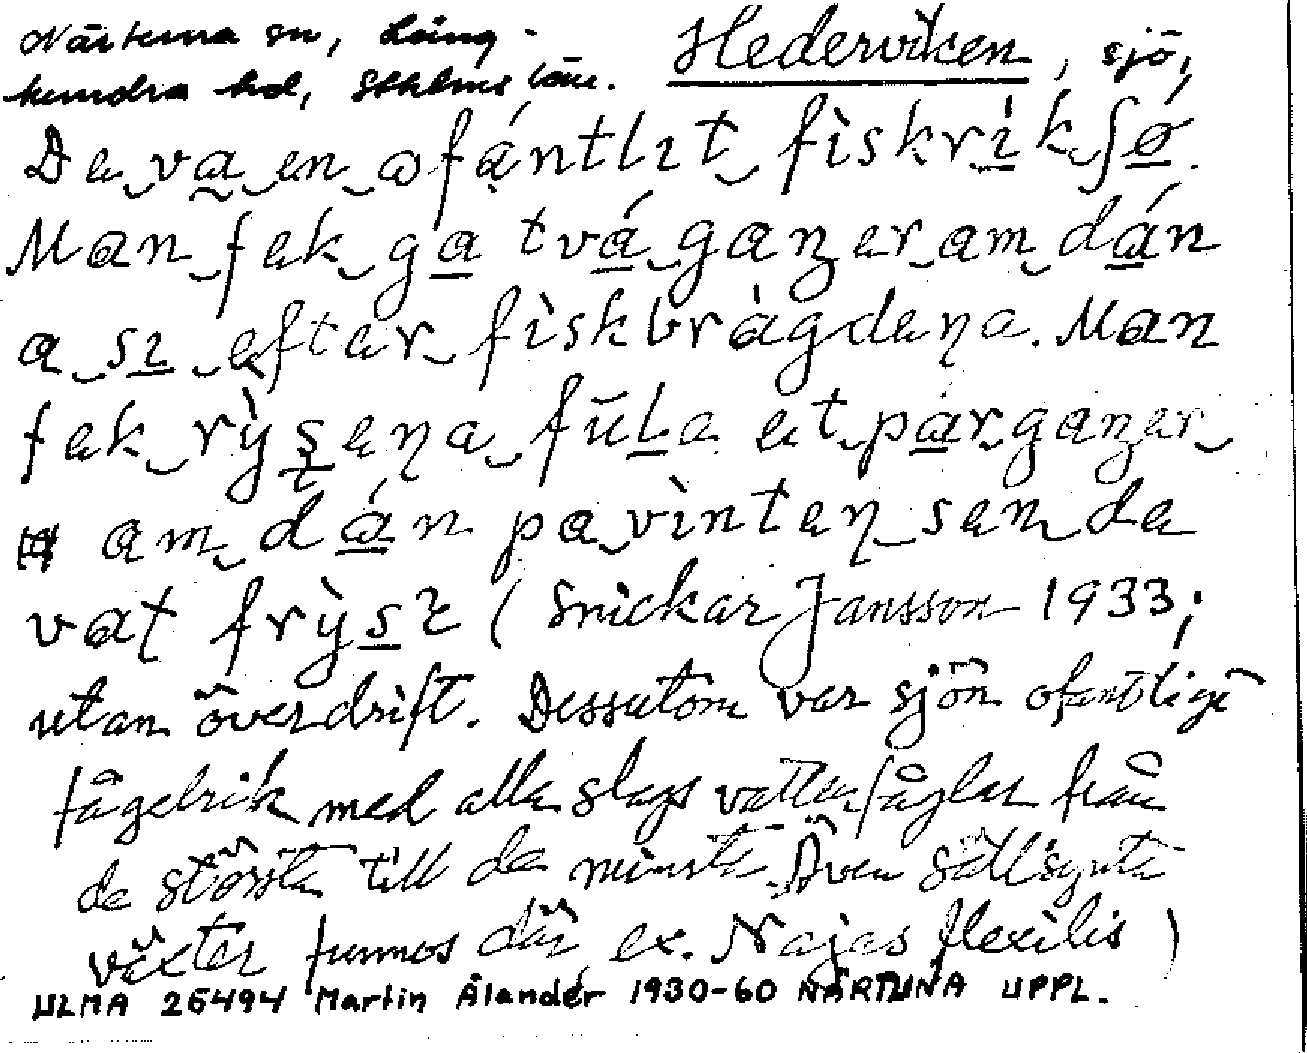 Närtuna sn, Lång-
hundra hd, Sthlms län.
Hederviken, sjö,
De va en ofántlıt fìskrik sǿ.
Man fek ga tvǻ gaŋer am dán
a sı efter fìskbràgdena. Man
fek rỳsena fula et par gaŋer
am dán pa vìnten sen de
vat frỳsı (Snickar Jansson 1933;
utan överdrift. Dessutom var sjön ofantligt
fågelrik med alla slags vattenfåglar från
de största till de minsta. Även sällsynta
växter funnos där, ex. Najas flexilis)
ULMA 26494 Martin Ålander 1930-60 NÄRTUNA UPPL.